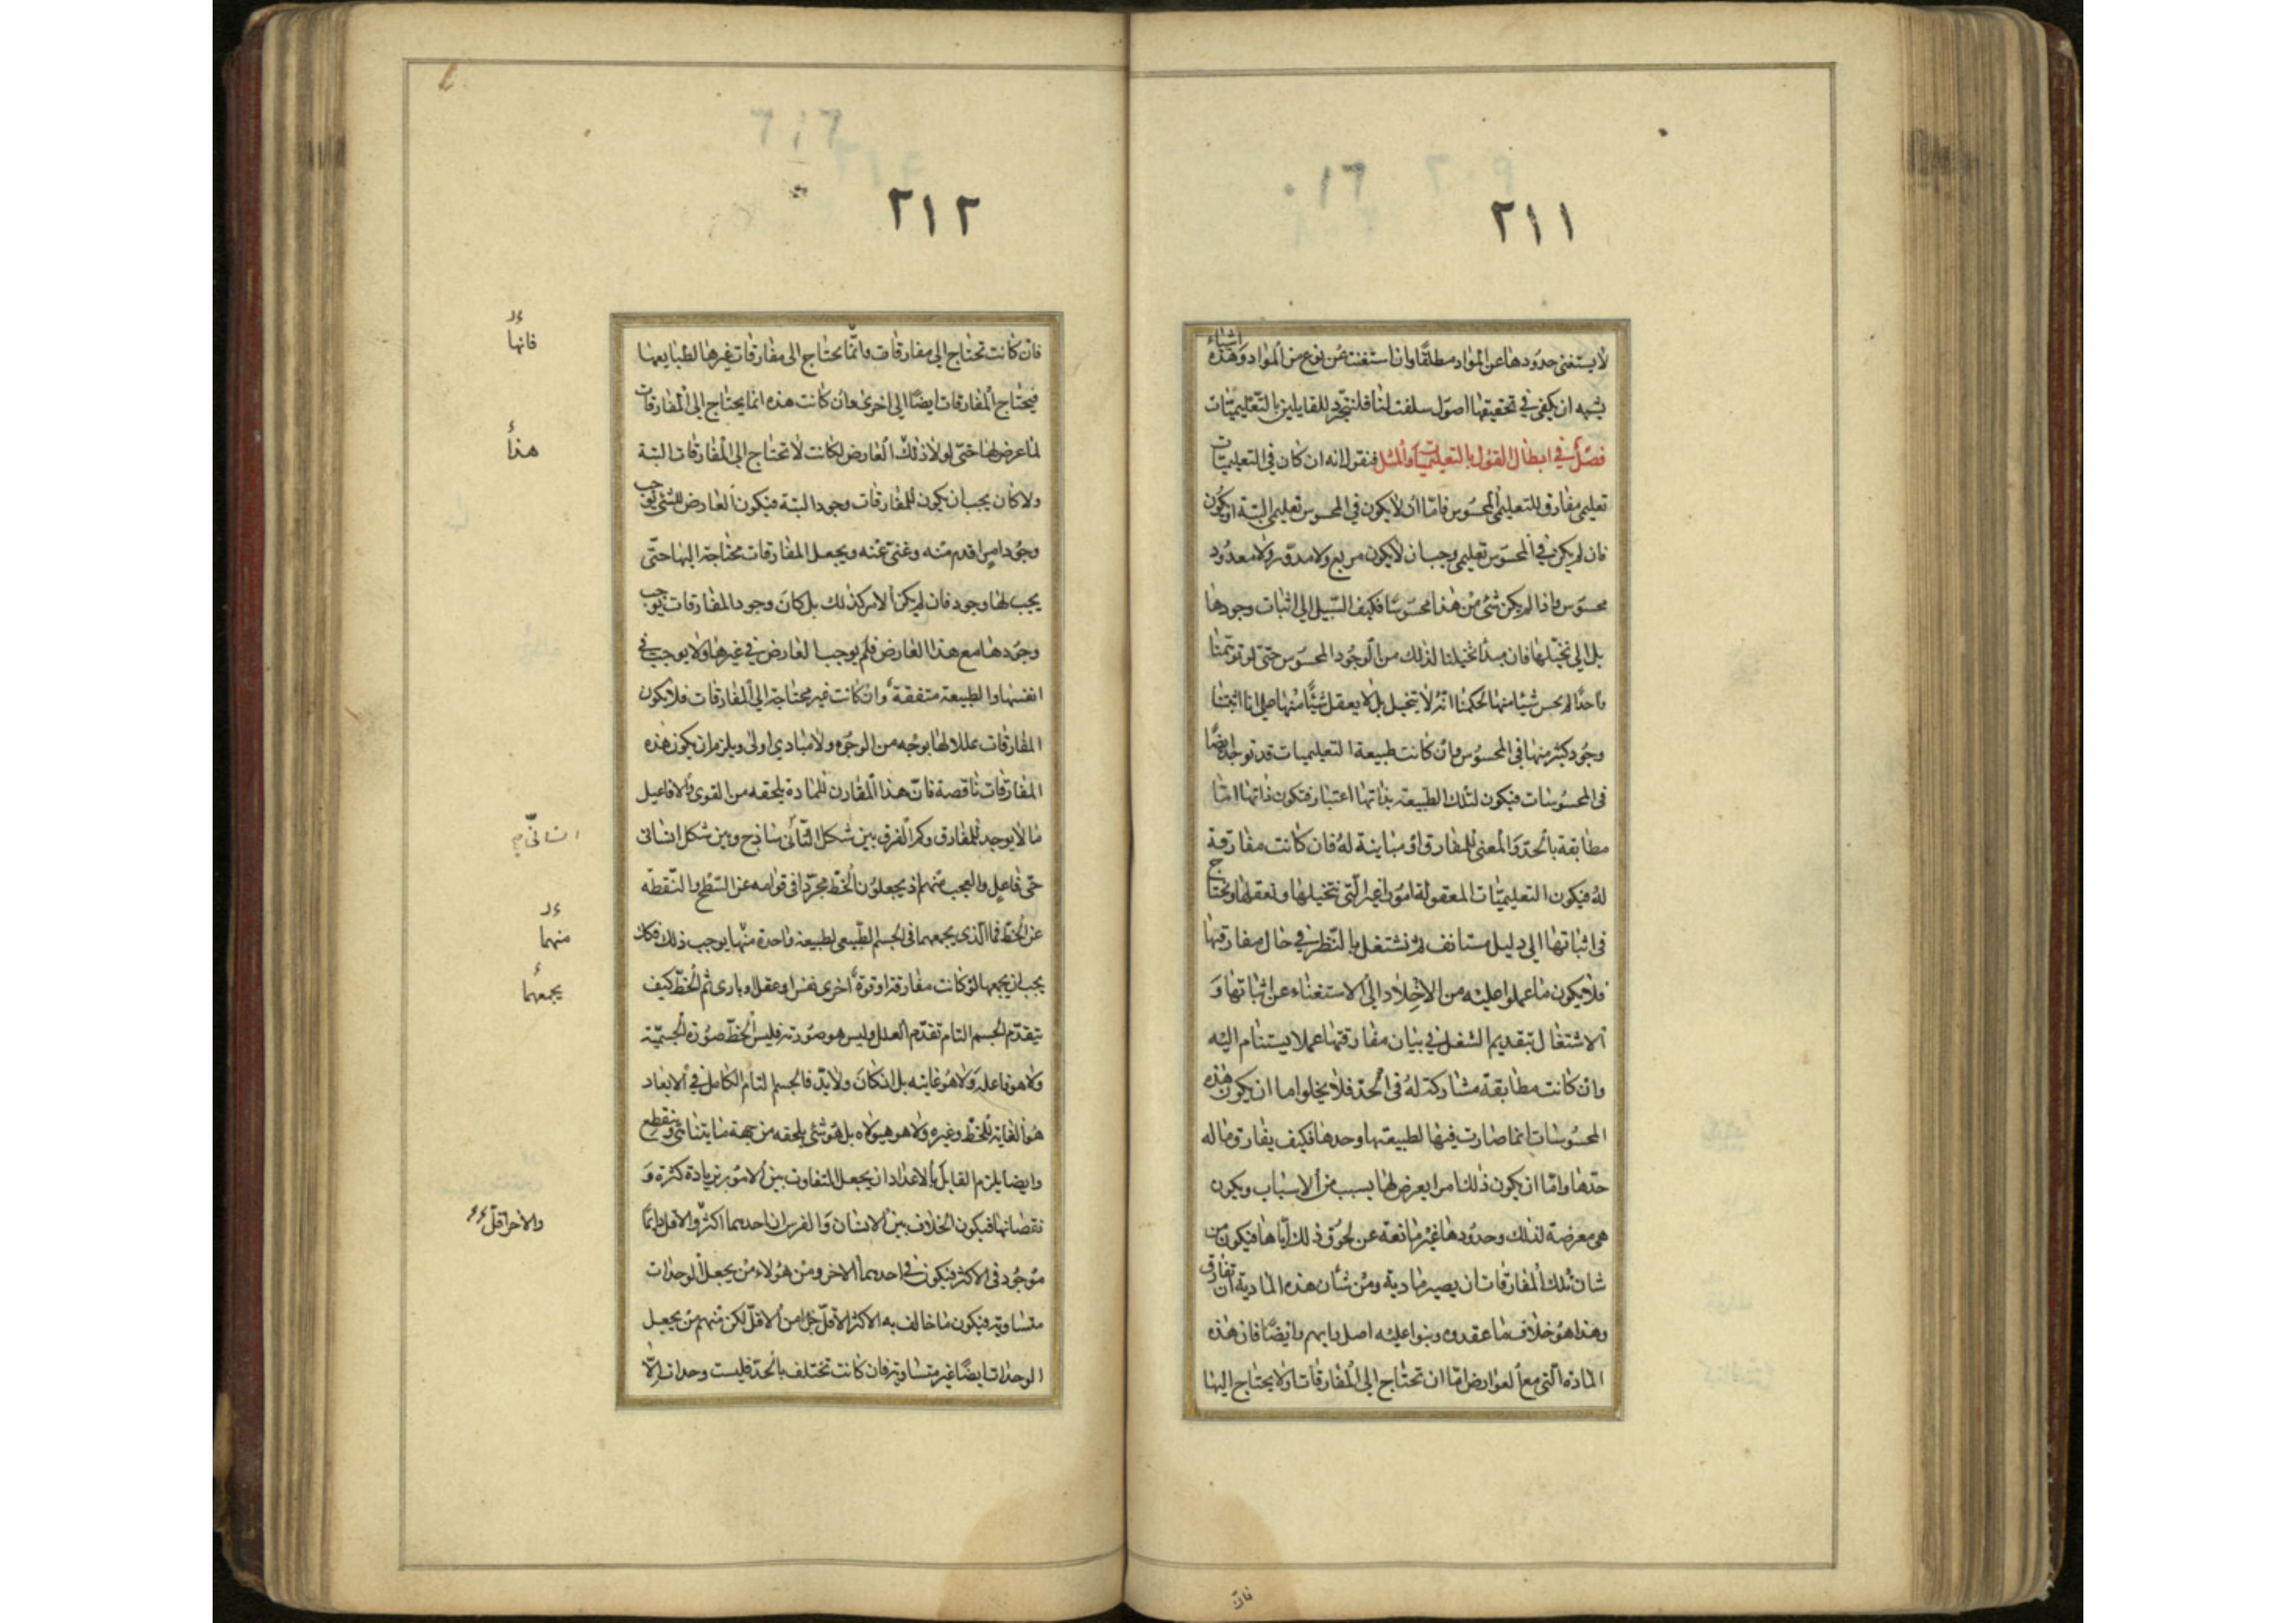 ٢١١
اشياء
لا يستغنى حدودها عن المواد مطلقا وان استغنت عن نوع من المواد وهذه
يشبه ان يكفى في تحقيقها اصول سلفت لنا فلنتجرد للقايلين بالتعليميات
فصل في ابطال القول بالتعليميات والمثل فنقول انه ان كان في التعليميات
تعليمي مفارق للتعليمي المحسوس فاما ان لا يكون في المحسوس تعليمي البتة او يكون
فان لم يكن في المحسوس تعليمي وجب ان لا يكون مربع ولا مدور ولا معدود
محسوس واذا لم يكن شئ من هذا محسوسا فكيف السبيل الى اثبات وجودها
بل الى تخيلها فان مبدأ تخيلنا لذلك من الوجود المحسوس حتى لو توهمنا
واحدا لم يحس شيئا منها لحكمنا انه لا يتخيل بل لا يعقل شيئا منها على انا اثبتنا
وجود كثير منها في المحسوس وان كانت طبيعة التعليميات قد توجد ايضا
فى المحسوسات فيكون لتلك الطبيعة بذاتها اعتبار فتكون ذاتها اما
مطابقة بالحد والمعنى للمفارق او مباينة له فان كانت مفارقة
له فيكون التعليميات المعقولة امورا غير التى نتخيلها ونعقلها ونحتاج
فى اثباتها الى دليل مستانف ثم نشتغل بالنظر في حال مفارقتها
فلا يكون ما عملوا عليه من الاخلاد الى الاستغناء عن اثباتها و
الاشتغال بتقديم الشغل في بيان مفارقتها عملا يستنام اليه
وان كانت مطابقة مشاركة له فى الحد فلا يخلوا اما ان يكون هذه
المحسوسات انما صارت فيها لطبيعتها وحدها فكيف يفارق ما له
حدها واما ان يكون ذلك امرا يعرض لها بسبب من الاسباب ويكون
هى معرضة لذلك وحدودها غير مانعة عن لحوق ذلك اياها فيكون من
شان تلك المفارقات ان يصير مادية ومن شان هذه المادية ان تفارق
وهذا هو خلاف ما عقدوه وبنوا عليه اصل رايهم وايضا فان هذه
المادة التى مع العوارض اما ان تحتاج الى المفارقات او لا يحتاج اليها
فان
٢١٢
فان كانت تحتاج الى مفارقات وانما يحتاج الى مفارقات غيرها لطبايعها
فيحتاج المفارقات ايضا الى اخرى وان كانت هذه انما يحتاج الى المفارقات
لما عرض لها حتى لولا ذلك العارض لكانت لا تحتاج الى المفارقات البتة
ولا كان يجب ان يكون للمفارقات وجود البتة فيكون العارض للشئ يوجب
وجود امر اقدم منه وغنى عنه ويجعل المفارقات محتاجة اليها حتى
يجب لها وجود فان لم يكن الامر كذلك بل كان وجود المفارقات يوجب
وجودها مع هذا العارض فلم يوجب العارض في غيرها ولا يوجب في
انفسها والطبيعة متفقة وان كانت غير محتاجة الى المفارقات فلا يكون
المفارقات عللا لها بوجه من الوجوه ولا مبادي اولى ويلزم ان يكون هذه
المفارقات ناقصة فان هذا المقارن للمادة يلحقه من القوى والافاعيل
ما لا يوجد للمفارق وكم الفرق بين شكل انساني ساذج وبين شكل انسانى
حى فاعل والعجب منهم اذ يجعلون الخط مجردا فى قوامه عن السطح والنقطة
عن الخط فما الذى يجمعهما فى الجسم الطبيعى لطبيعة واحدة منها يوجب ذلك فكك
يجب ان يجمعها لو كانت مفارقة او قوة اخرى نفس او عقل او بارى ثم الخط كيف
يتقدم الجسم التام تقدم العلل وليس هو صورته فليس الخط صورة الجسمية
ولا هو فاعله ولا هو غايته بل ان كان ولا بد فالجسم التام الكامل في الابعاد
هو الغاية للخط وغيره ولا هو هيولاه بل هو شئ يلحقه من جهة ما يتناهى وينقطع
وايضا يلزم القايل بالاعداد ان يجعل التفاوت بين الامور بزيادة كثرة و
نقصانها فيكون الخلاف بين الانسان والفرس ان احدهما اكثر والاقل دائما
موجود فى الاكثر فيكون في احدهما الاخر ومن هؤلاء من يجعل الوحدات
متساوية فيكون ما خالف به الاكثر الاقل جزا من الاقل لكن منهم من يجعل
الوحدات ايضا غير متساوية فان كانت تختلف بالحد فليست وحدات الا
فانها
هذا
انسانى
منهما
يجمعهما
والاخر اقل